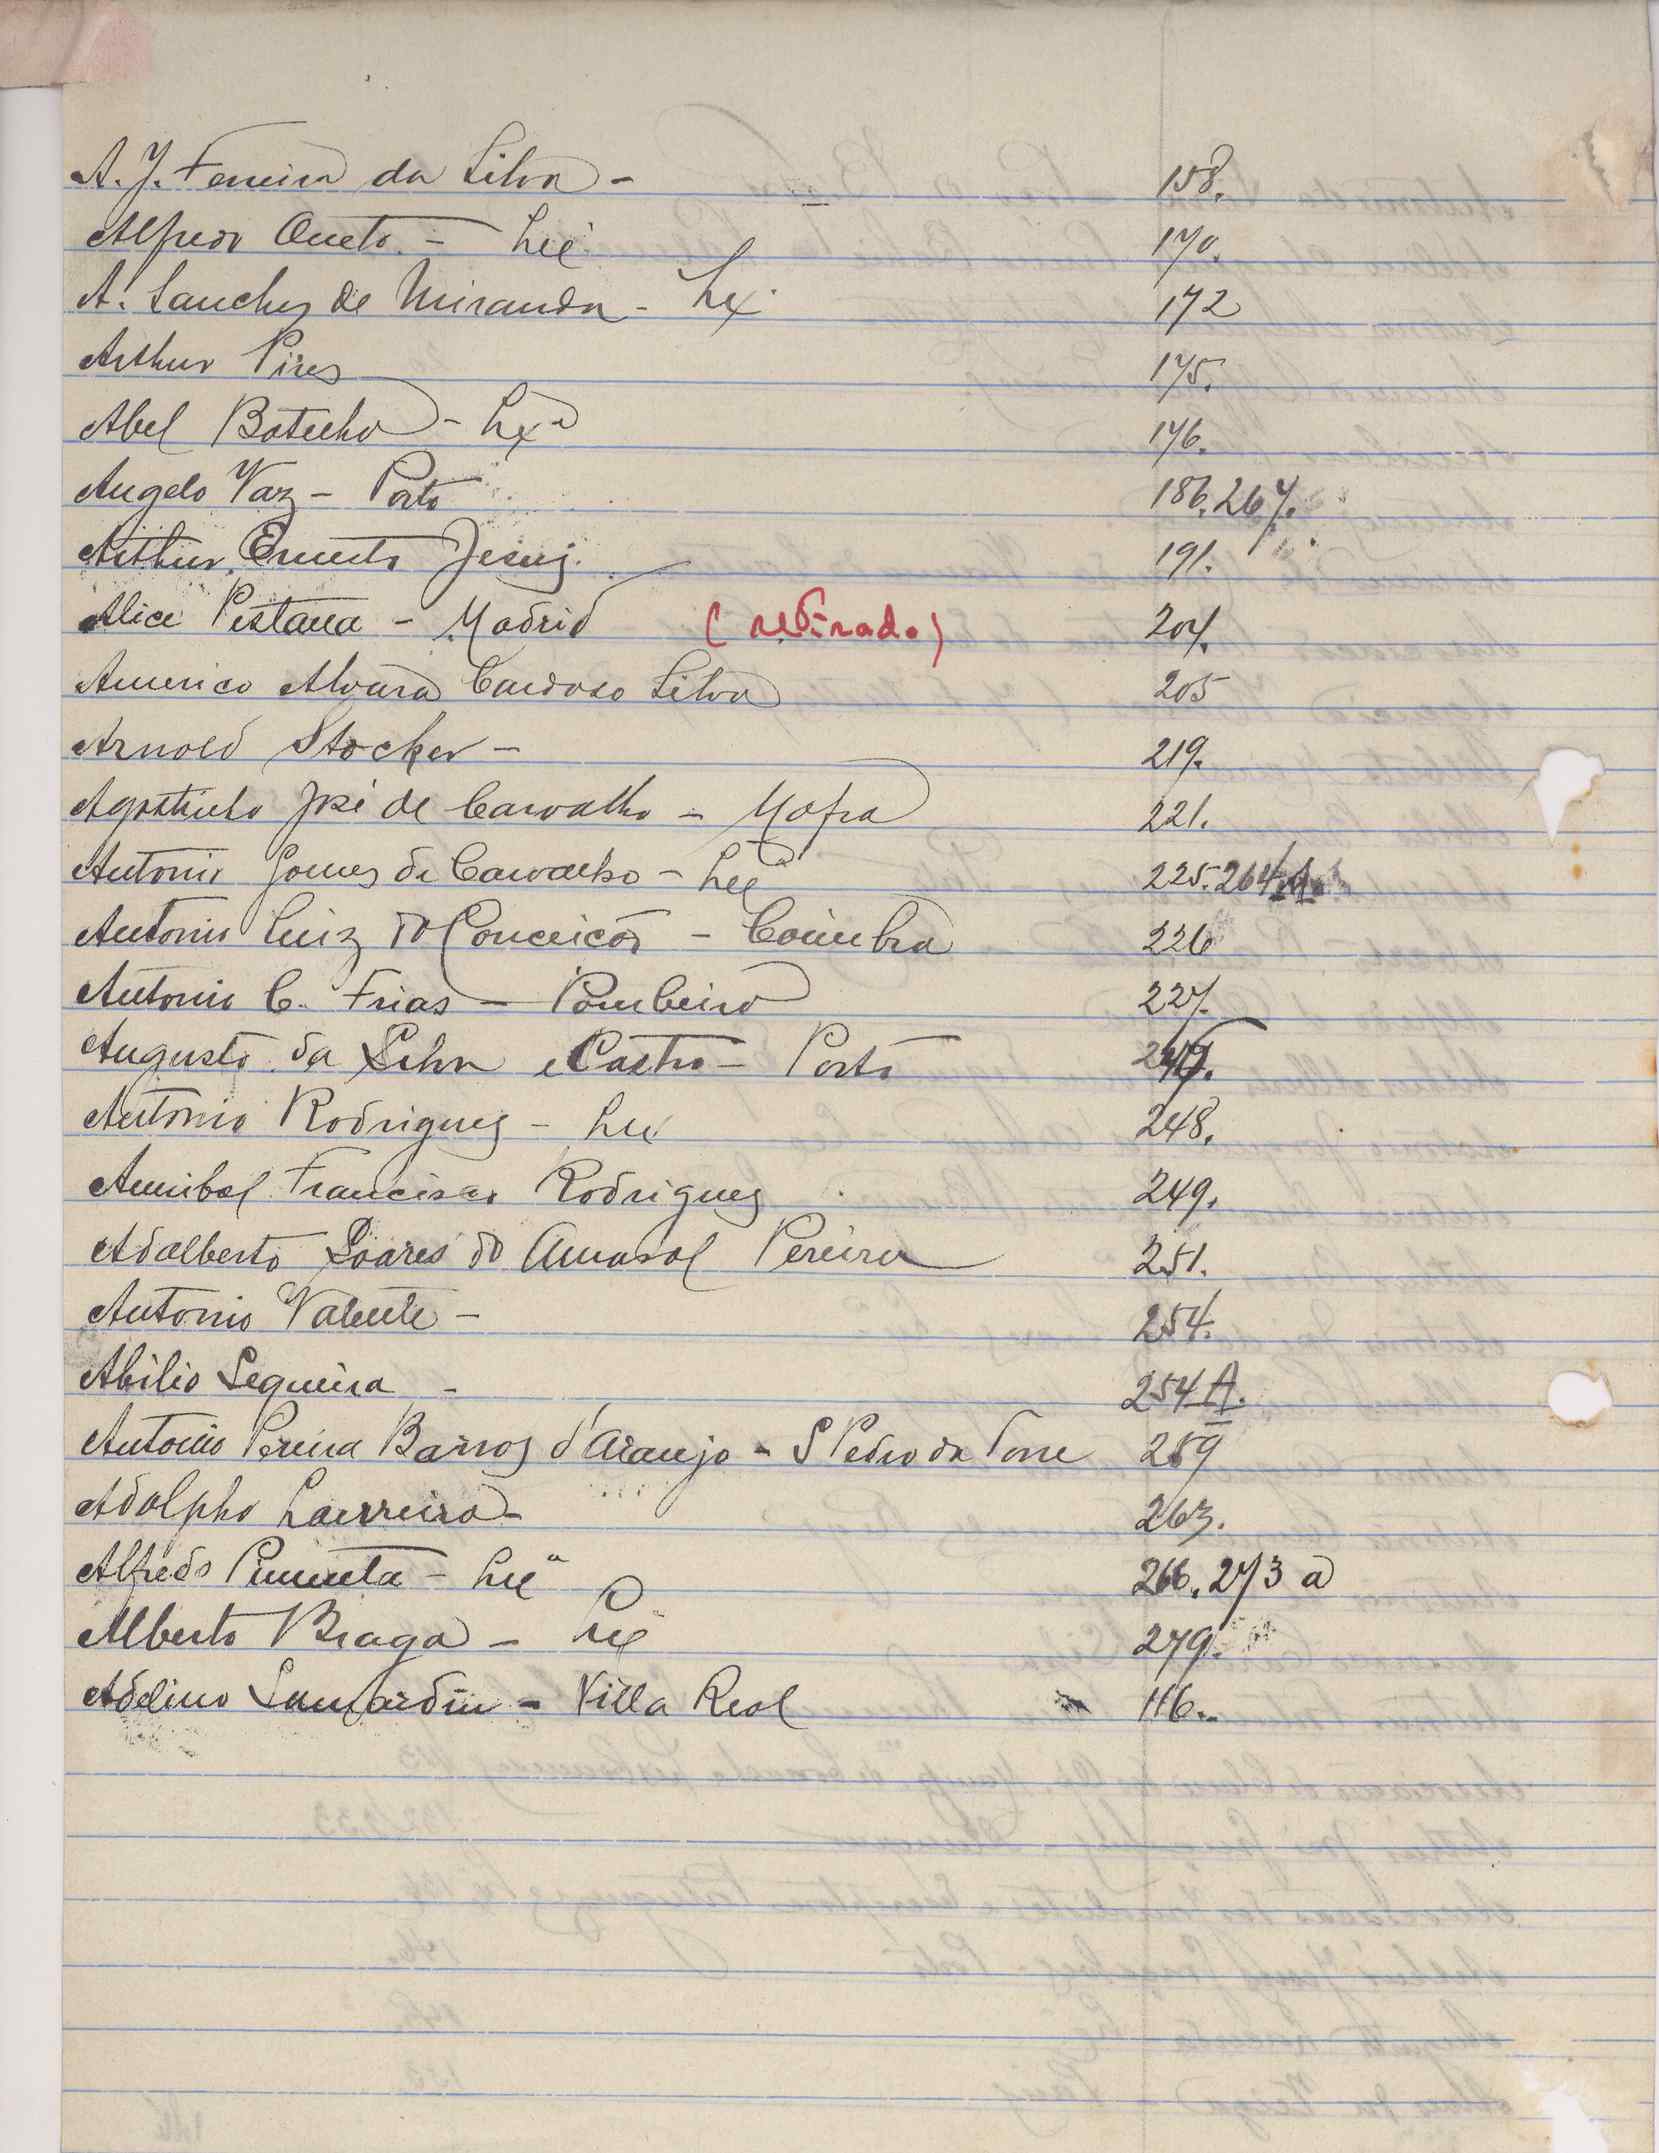 A. J. Ferreira da Silva - 158.
Alfredo Cuneto. - Lxª 170.
A. Sanches de Miranda - Lxª 172
Arthur Pires 175.
Abel Botelho - Lxª 176.
Angelo Vaz - Porto 186. 267.
Arthur Ernesto Jesus. 191.
Alice Pestana - Madrid (retirado) 204.
Americo Alvara Cardoso Silva 205
Arnold Stocker - 219.
Agostinho José de Carvalho - Mafra 221.
Antonio Gomes de Carvalho - Lxª 225. 264 A.
Antonio Luiz da Conceição - Coimbra 226
Antonio C. Frias - Pombeiro 227.
Augusto da Silva e Castro - Porto
Antonio Rodrigues - Lxª 248.
Annibal Francisco Rodrigues 249.
Adalberto Soares do Amaral Pereira 251.
Antonio Valente - 254.
Abilio Sequeira - 254 A.
Antonio Pereira Barros d'Araujo - S Pedro da Torre 259
Adolpho Loureiro - 263.
Alfredo Pimenta - Lxª 266. 273 a
Alberto Braga - Lxª 279.
Adelino Samardan - Villa Real 116.